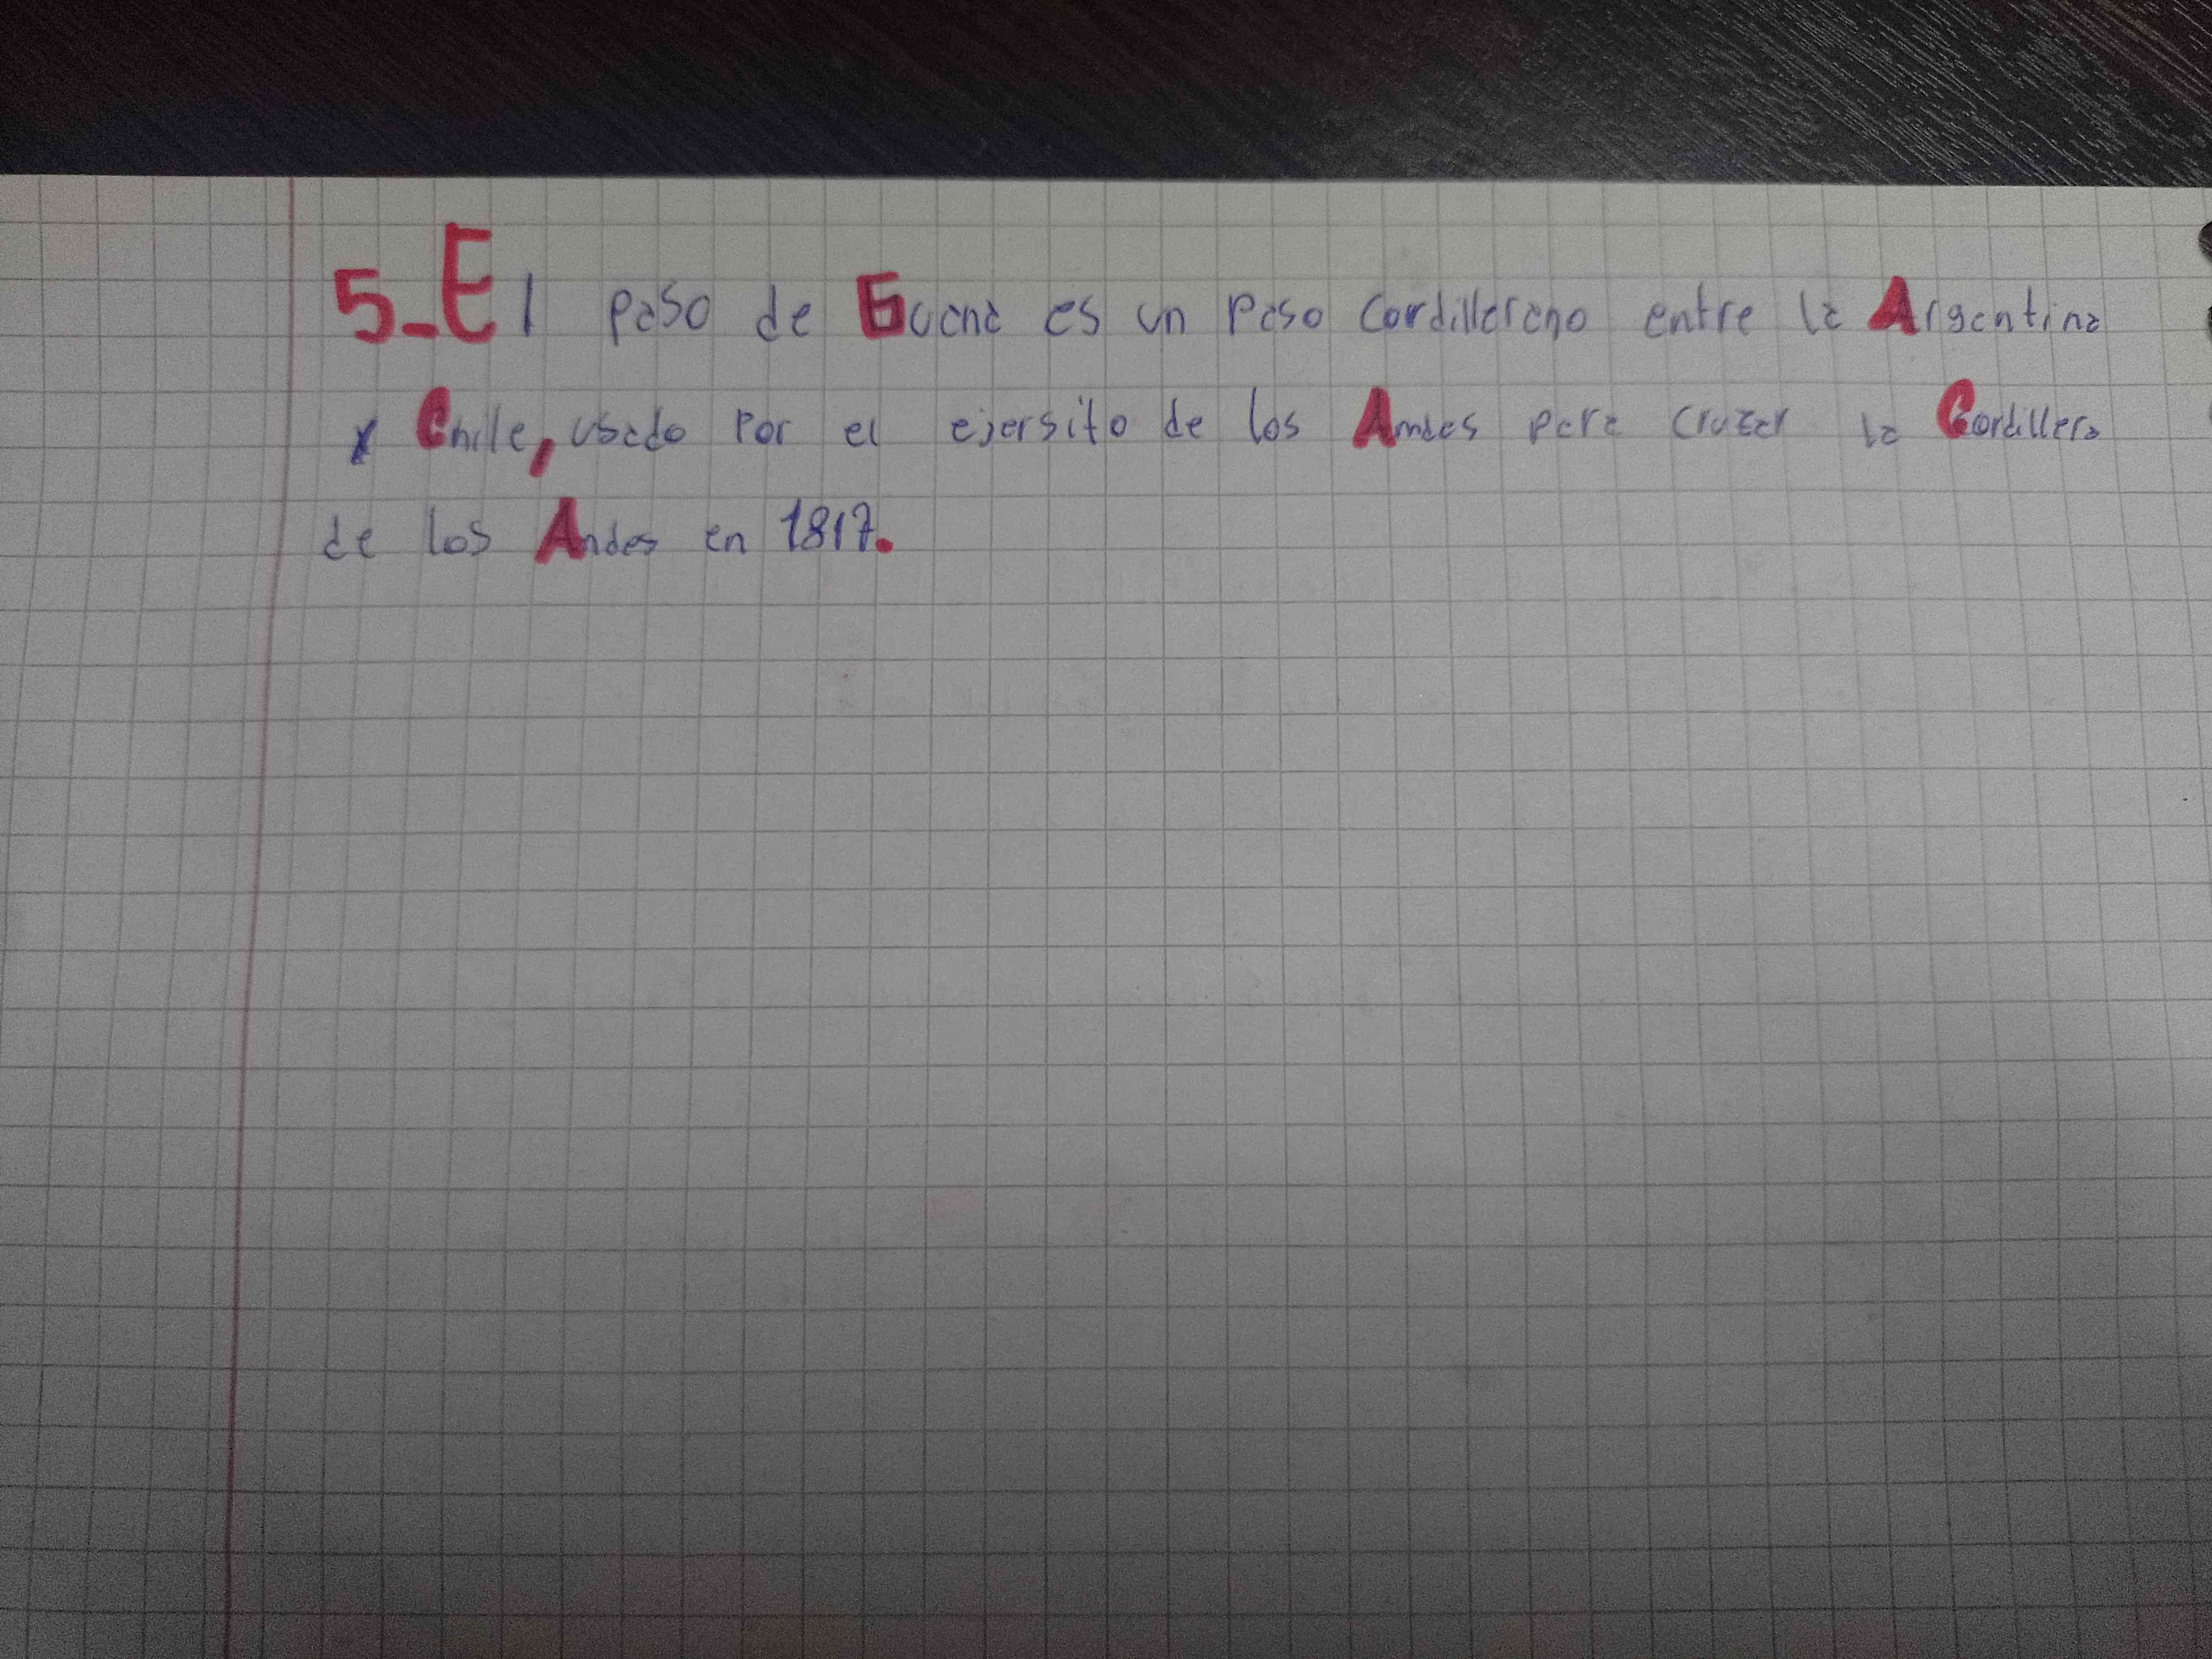 5_El paso de Guana es un paso Cordillerano entre la Argentina
y Chile, usado por el ejersito de los Andes para cruzar la Cordillera
de los Andes en 1817.